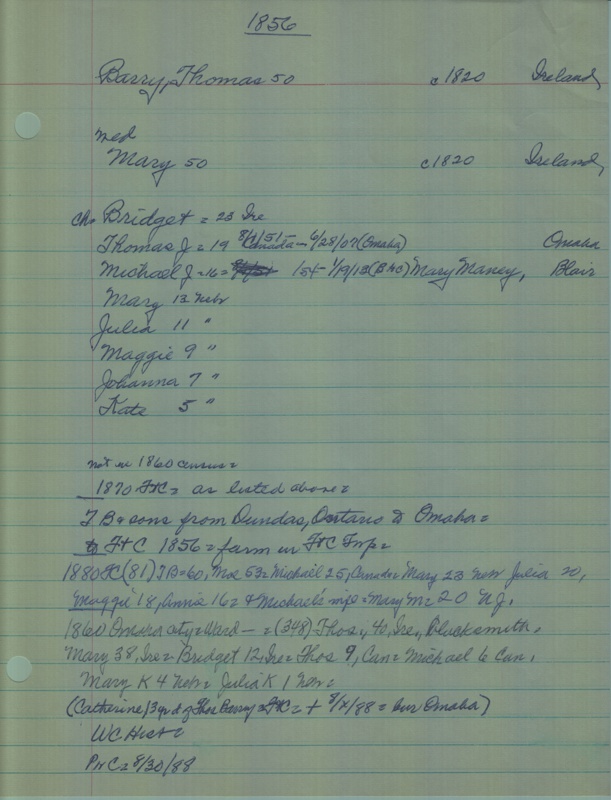 1856
Barry, Thomas 50 c1820 Ireland
med
Mary 50 c1820 Ireland
ch= Bridget = 23 Ire
Thomas J = 19 8/1/51- Canada - 6/28/07 (Omaha) Omaha
Michael J = 16 = 1/19/13 (B&C) Mary Maney, Blair
Mary 13 Nebr
Julia 11 "
Maggie 9 "
Johanna 7 "
Kate 5 "
not in 1860 census =
1870 FtC = as listed above =
T B & sons from Dundas, Ontario to Omaha =
to Ft C 1856 = farm in Ft C Twp =
1880 FC (81) TB=60, Moe 53 = Michael 25, Canada = Mary 23 Nebr Julia 20,
Maggie 18, Annie 16 = & Michael's wife = Mary M = 20 N J,
1860 Omaha city = Ward - = (348) Thos, 40, Ire, Blacksmith,
Mary 38, Ire = Bridget 12, Ire = Thos 9, Can = Michael 6 Can,
Mary K 4 Nebr = Julia K 1 Nebr =
(Catherine) 3rd d of Thos Barry = FtC = + 8/x/88 = bur Omaha)
WC Hist =
PWC = 8/30/88